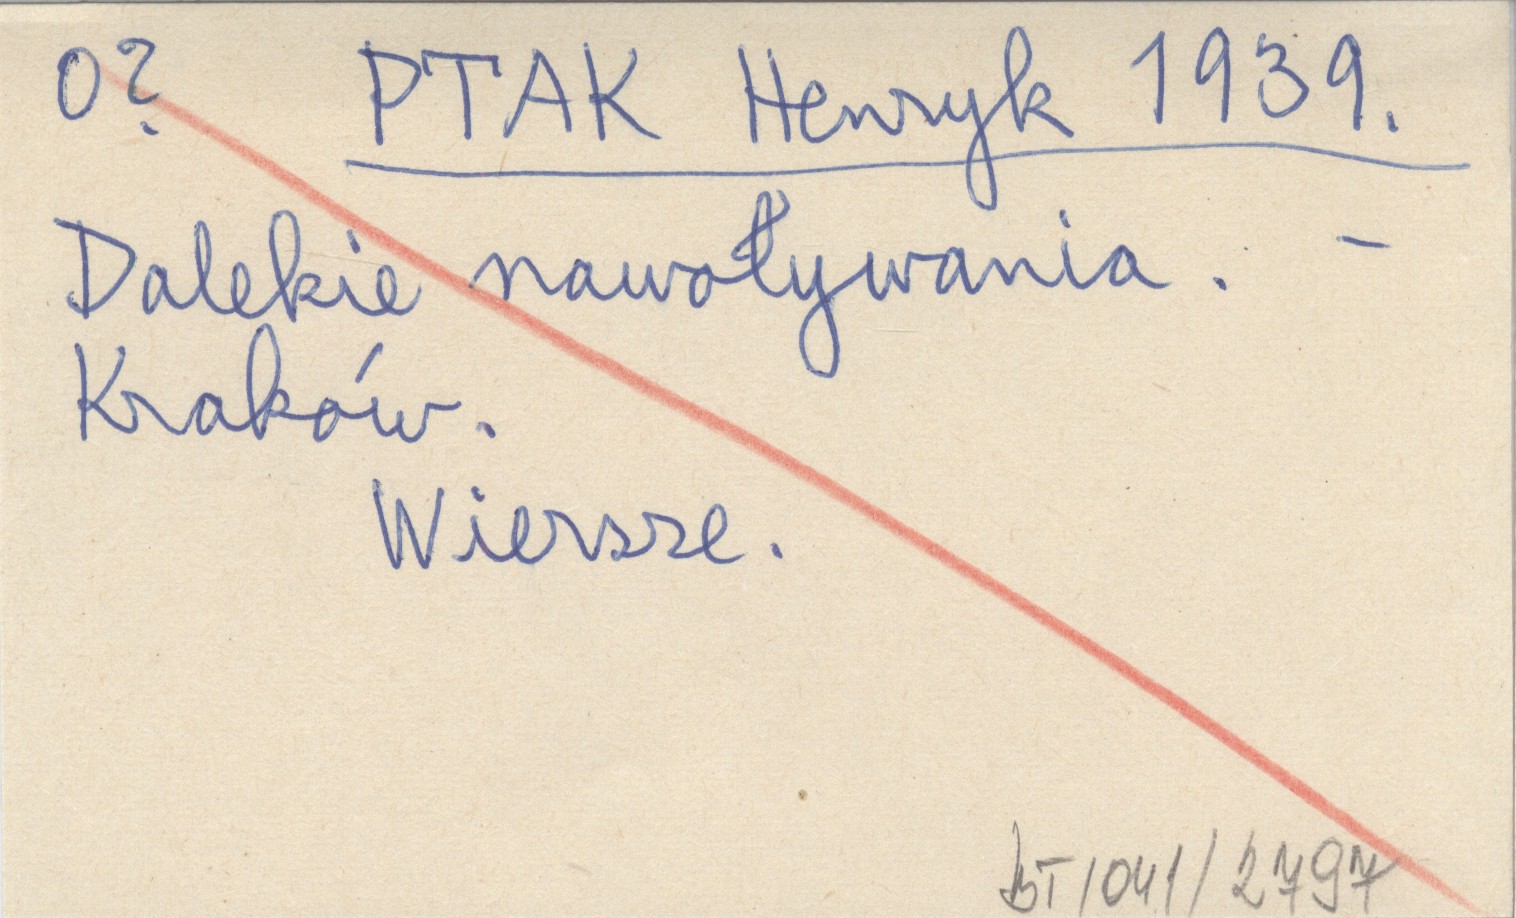 O? PTAK Henryk 1939.
Dalekie nawoływania. –
Kraków.
Wiersze.
BT/041/2797